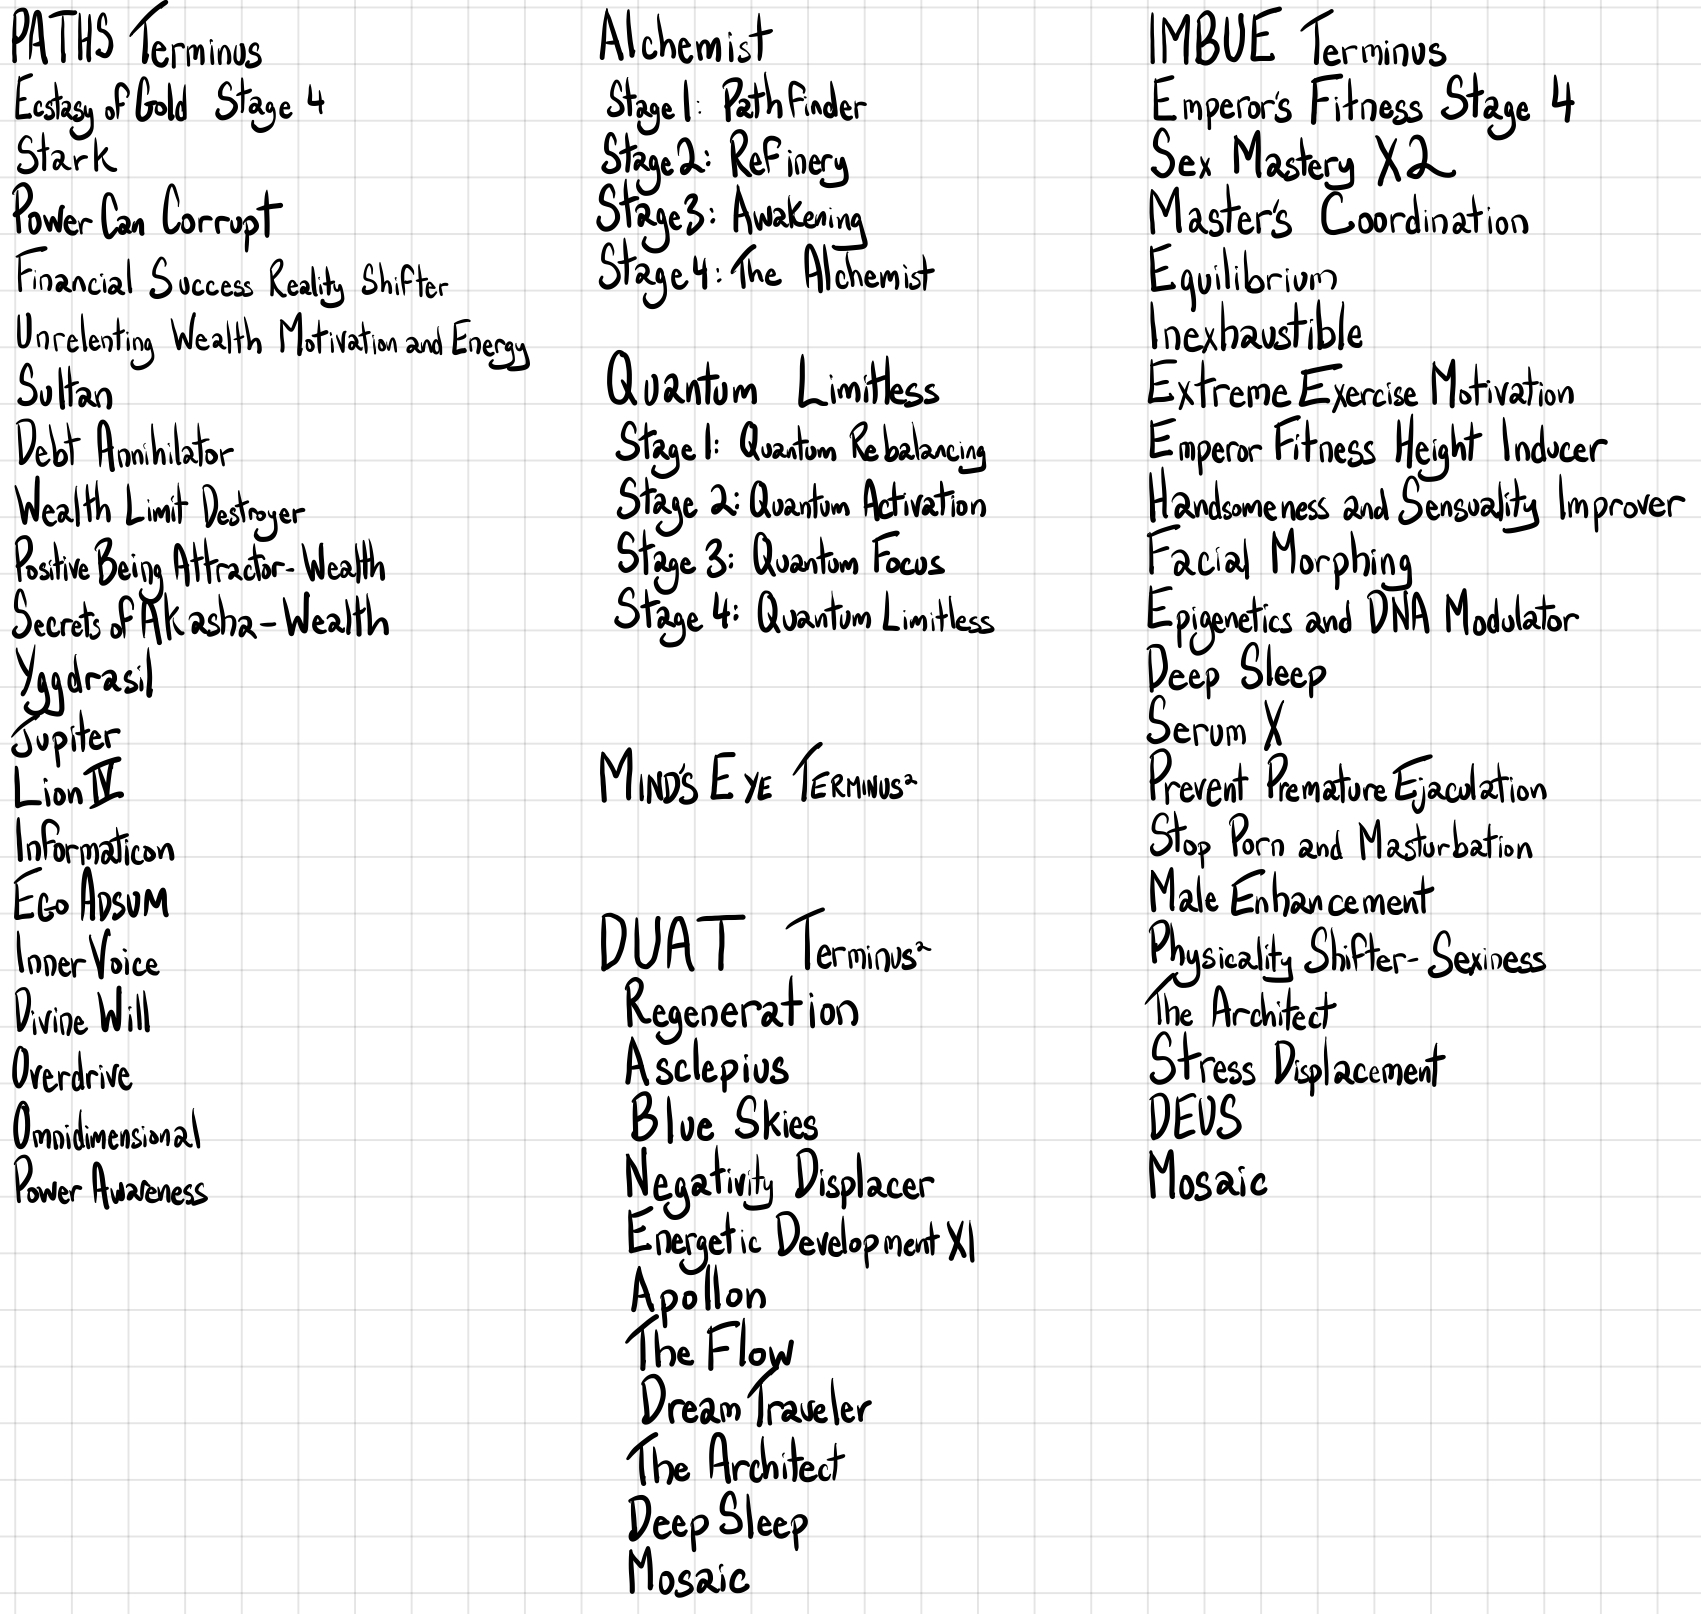 PATHS Terminus
Ecstasy of Gold Stage 4
Stark
Power Can Corrupt
Financial Success Reality Shifter
Unrelenting Wealth Motivation and Energy
Sultan
Debt Annihilator
Wealth Limit Destroyer
Positive Being Attractor-Wealth
Secrets of Akasha-Wealth
Yggdrasil
Jupiter
Lion IV
Informaticon
EGO ADSUM
Inner Voice
Divine Will
Overdrive
Omnidimensional
Power Awareness
Alchemist
Stage 1: Pathfinder
Stage 2: Refinery
Stage 3: Awakening
Stage 4: The Alchemist
Quantum Limitless
Stage 1: Quantum Rebalancing
Stage 2: Quantum Activation
Stage 3: Quantum Focus
Stage 4: Quantum Limitless
MIND'S EYE TERMINUS²
DUAT Terminus²
Regeneration
Asclepius
Blue Skies
Negativity Displacer
Energetic Development XI
Apollon
The Flow
Dream Traveler
The Architect
Deep Sleep
Mosaic
IMBUE Terminus
Emperor's Fitness Stage 4
Sex Mastery X2
Master's Coordination
Equilibrium
Inexhaustible
Extreme Exercise Motivation
Emperor Fitness Height Inducer
Handsomeness and Sensuality Improver
Facial Morphing
Epigenetics and DNA Modulator
Deep Sleep
Serum X
Prevent Premature Ejaculation
Stop Porn and Masturbation
Male Enhancement
Physicality Shifter-Sexiness
The Architect
Stress Displacement
DEUS
Mosaic